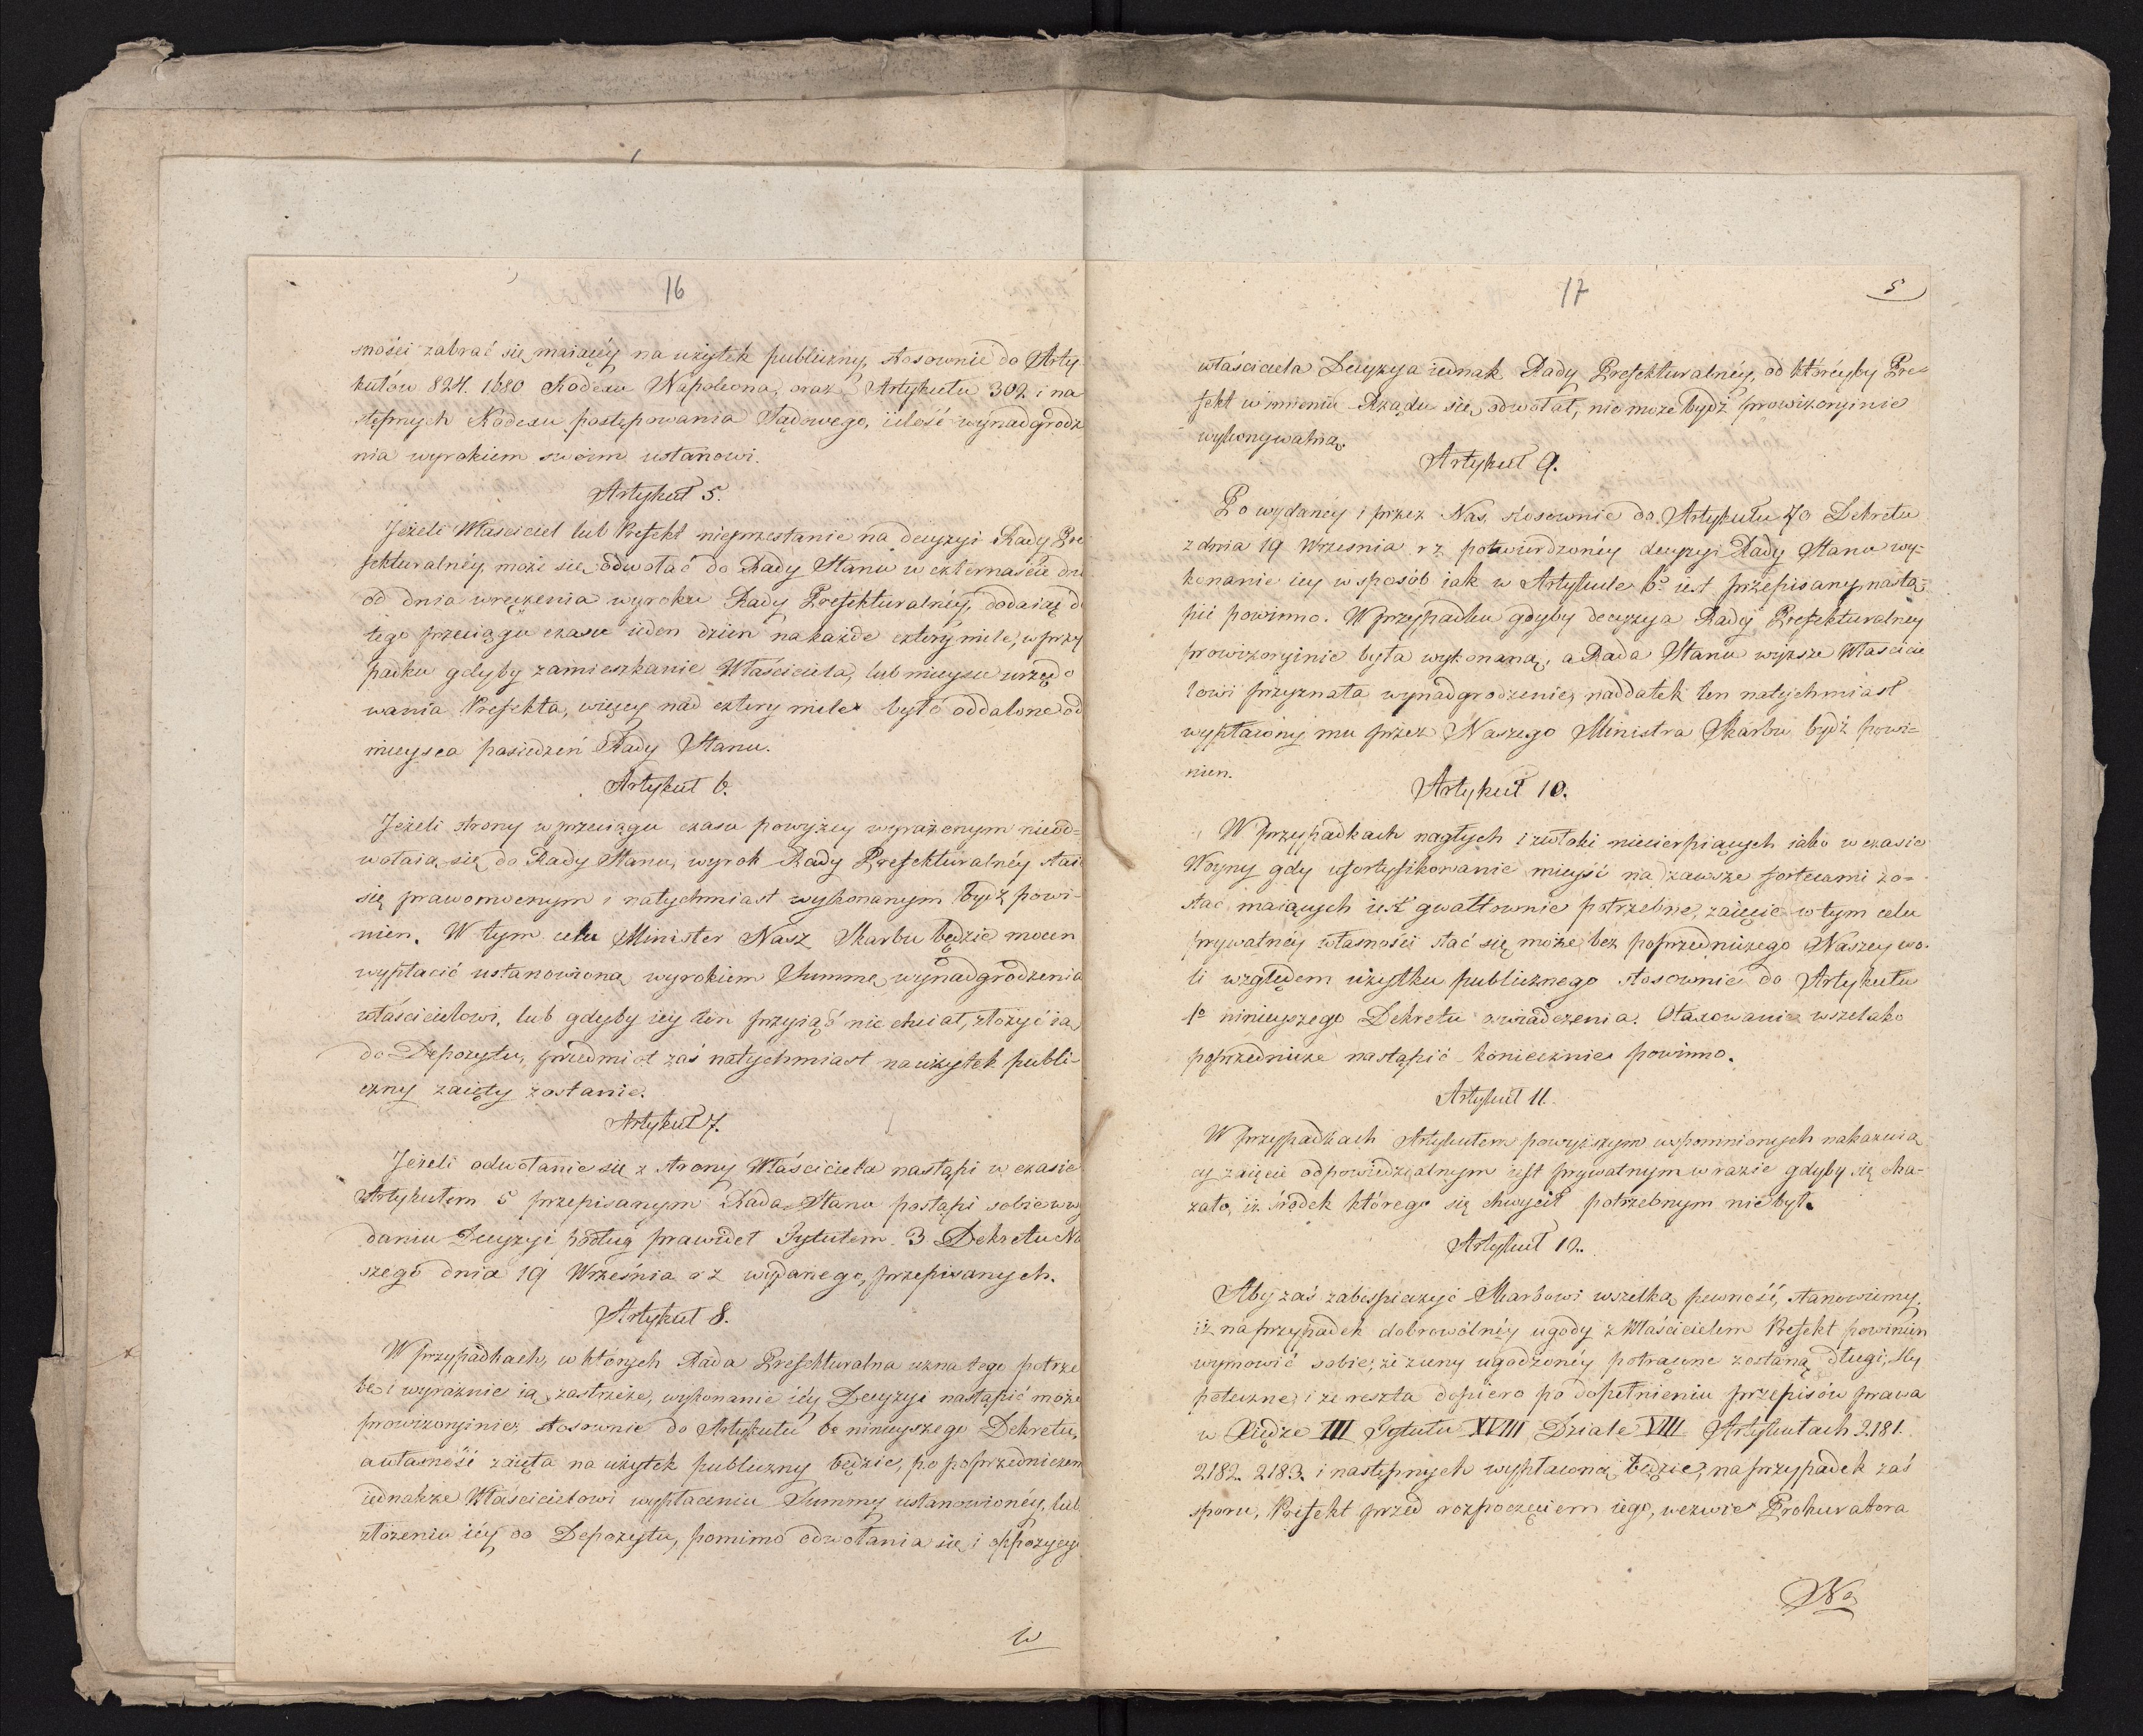 16
sności zabrać się maiącéy na użytek publiczny, stosownie do Arty-
kułów 824. 1680 Kodexu Napoleona, oraz Artykułu 302. i na
stępnych Kodexu postępowania Sądowego, ilość wynadgrodze
nia wyrokiem swoim ustanowi.
Artykuł 5.
Jeżeli Właściciel lub Prefekt nieprzestanie na decyzyi Rady Pre
fekturalnéy, może się odwołać do Rady Stanu w czternaście dni
od dnia wręczenia wyroku Rady Prefekturalnéy, dodaiąc d
tego przeciągu czasu ieden dzień na każde cztery mile, w przy
padku gdyby zamieszkanie Właściciela, lub mieysce urzędo
wania Prefekta, więcey nad cztery mile było oddalone od
mieysca posiedzeń Rady Stanu.
Artykuł 6.
Jeżeli strony w przeciągu czasu powyżey wyrażonym nieod-
wołaią się do Rady Stanu, wyrok Rady Prefekturalnéy stai
się prawomocnym i natychmiast wykonanym bydź powi-
nien. W tym celu Minister Nasz Skarbu będzie mocen
wypłacić ustanowioną wyrokiem Summę wynadgrodzenia
właścicielowi, lub gdyby iéy ten przyiąć nie chciał, złożyć ią
do Depozytu, przedmiot zaś natychmiast na użytek publi-
czny zaięty zostanie.
Artykuł 7.
Jeżeli odwołanie się z strony Właściciela nastąpi w czasie
Artykułem 5 przepisanym Rada Stanu postąpi sobie w wy
daniu Decyzyi podług prawideł Tytułem 3 Dekretu Na
szego dnia 19 Września r z wydanego, przepisanych.
Artykuł 8.
W przypadkach, w których Rada Prefekturalna uzna tego potrze
bę i wyraznie ią zastrzeże, wykonanie iéy Decyzyi nastąpić może
prowizoryinie, stosownie do Artykułu 6o ninieyszego Dekretu,
a własność zaięta na użytek publiczny będzie, po poprzedniczem
iednakże Właścicielowi wypłaceniu Summy ustanowionéy, lub
złożeniu iéy do Depozytu, pomimo odwołania się i oppozycyi
W
17
5
właściciela Decyzya iednak Rady Prefekturalnéy, od któréyby Pre-
fekt w imieniu Rządu się odwołał, nie może bydź prowizoryinie
wykonywalną.
Artykuł 9.
Po wydanéy i przez Nas, stosownie do Artykułu 40 Dekretu
z dnia 19 Wrzesnia r z potwierdzonéy decyzyi Rady Stanu wy-
konanie iey w sposób iak w Artykule 6o iest przepisany, nastą-
pić powinno. W przypadku gdyby decyzya Rady Prefekturalney
prowizoryinie była wykonaną, a Rada Stanu wyższe Właścicie
lowi przyznała wynadgrodzenie, naddatek ten natychmiast
wypłacony mu przez Naszego Ministra Skarbu bydź powi-
nien.
Artykuł 10.
W przypadkach nagłych i zwłoki niecierpiących iako w czasie
Woyny gdy ufortyfikowanie mieysc na zawsze fortecami zo-
stać maiących iest gwałtownie potrzebne, zaięcie w tym celu
prywatnéy własności stać się może bez poprzedniczego Naszey wo-
li względem użytku publicznego stosownie do Artykułu
1o ninieyszego Dekretu oswiadczenia. Otaxowanie wszelako
poprzednicze nastąpić koniecznie powinno.
Artykuł 11.
W przypadkach Artykułem powyższym wspomnionych nakazuią
cy zaięcie odpowiedzialnym iest prywatnym w razie gdyby się oka-
zało, iż środek którego się chwycił potrzebnym nie był.
Artykuł 12.
Aby zaś zabespieczyć Skarbowi wszelką pewność, stanowiemy,
iż na przypadek dobrowólnéy ugody z Właścicielem Prefekt powinien
wymowić sobie, że z ceny ugodzonéy potrącone zostaną długi, Hy
poteczne, i że reszta dopiero po dopełnieniu przepisów prawa
w Xiędze III Tytułu XVIII Dziale VIII Artykułach 2181.
2182. 2183. i następnych wypłaconą będzie, na przypadek zaś
sporu, Prefekt przed rozpoczęciem iego, wezwie Prokuratora
Na